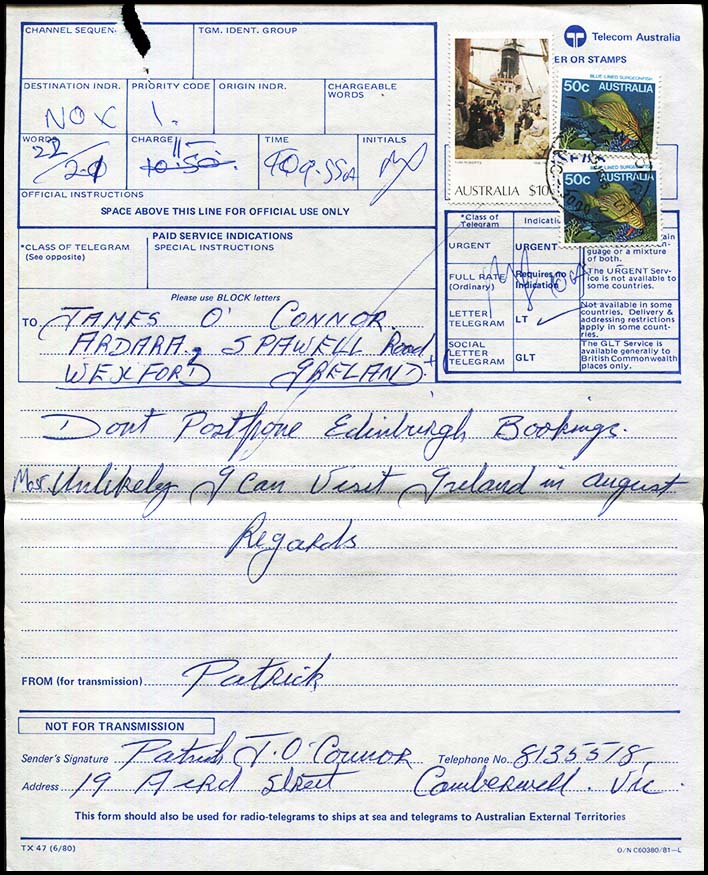 CHANNEL SEQUEN.
TGM. IDENT. GROUP
Telecom Australia
ER OR STAMPS
DESTINATION INDR.
PRIORITY CODE
ORIGIN INDR.
CHARGEABLE WORDS
NOX
1.
WORDS
CHARGE
TIME
INITIALS
22
11
10.50
OFFICIAL INSTRUCTIONS
SPACE ABOVE THIS LINE FOR OFFICIAL USE ONLY
BLUE-LINED SURGEONFISH
50c AUSTRALIA
BLUE-LINED SURGEONFISH
50c AUSTRALIA
TOM ROBERTS
AUSTRALIA $10
*CLASS OF TELEGRAM
(See opposite)
PAID SERVICE INDICATIONS
SPECIAL INSTRUCTIONS
Please use BLOCK letters
*Class of Telegram
Indicati
URGENT
URGENT
guage or a mixture of both.
FULL RATE (Ordinary)
Requires no Indication
The URGENT Service is not available to some countries.
LETTER TELEGRAM
LT
Not available in some countries. Delivery & addressing restrictions apply in some countries.
SOCIAL LETTER TELEGRAM
GLT
The GLT Service is available generally to British Commonwealth places only.
TO JAMES O' CONNOR
ARDARA, SPAWELL Road
WEXFORD IRELAND
Dont Postpone Edinburgh Bookings.
Most Unlikely I Can Visit Ireland in august
Regards
FROM (for transmission) Patrick
NOT FOR TRANSMISSION
Sender's Signature Patrick J. O'Connor Telephone No. 8135518
Address 19 Aird Street Camberwell. Vic.
This form should also be used for radio-telegrams to ships at sea and telegrams to Australian External Territories
TX 47 (6/80)
O/N C60380/81—L